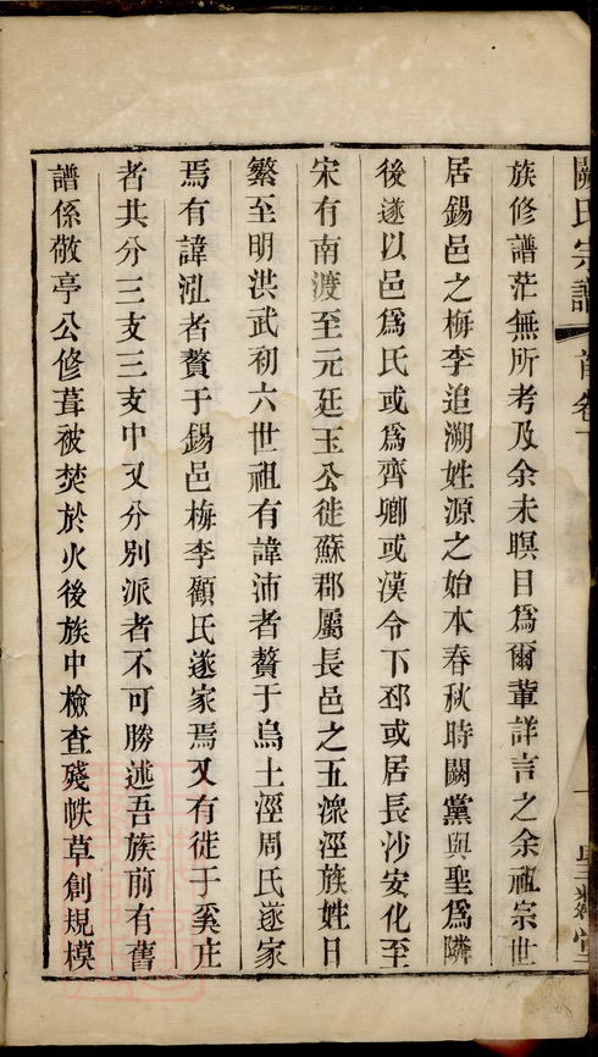 闕氏宗譜 首卷
族修譜茫無所考及余未瞑目爲爾輩詳言之余祖宗世
居錫邑之梅李追溯姓源之始本春秋時闕黨與聖爲隣
後遂以邑爲氏或爲齊卿或漢令下邳或居長沙安化至
宋有南渡至元廷玉公徙蘇郡屬長邑之五潨涇族姓日
繁至明洪武初六世祖有諱沛者贅于烏土涇周氏遂家
焉有諱泓者贅于錫邑梅李顧氏遂家焉又有徙于奚庄
者共分三支三支中又分別派者不可勝述吾族前有舊
譜係敬亭公修葺被焚於火後族中檢查殘帙草創規模